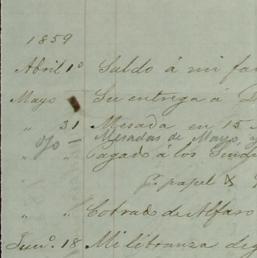 1859
Abril 1º Saldo á mi fa
Mayo Su entrega á D
" 31 Mesada en 15
% - Mesadas de Mayo, y
" " Pagado á los Sindi
p. papel &
" " Cobrado de Alfaro
Jun.º 18 Mi libranza de